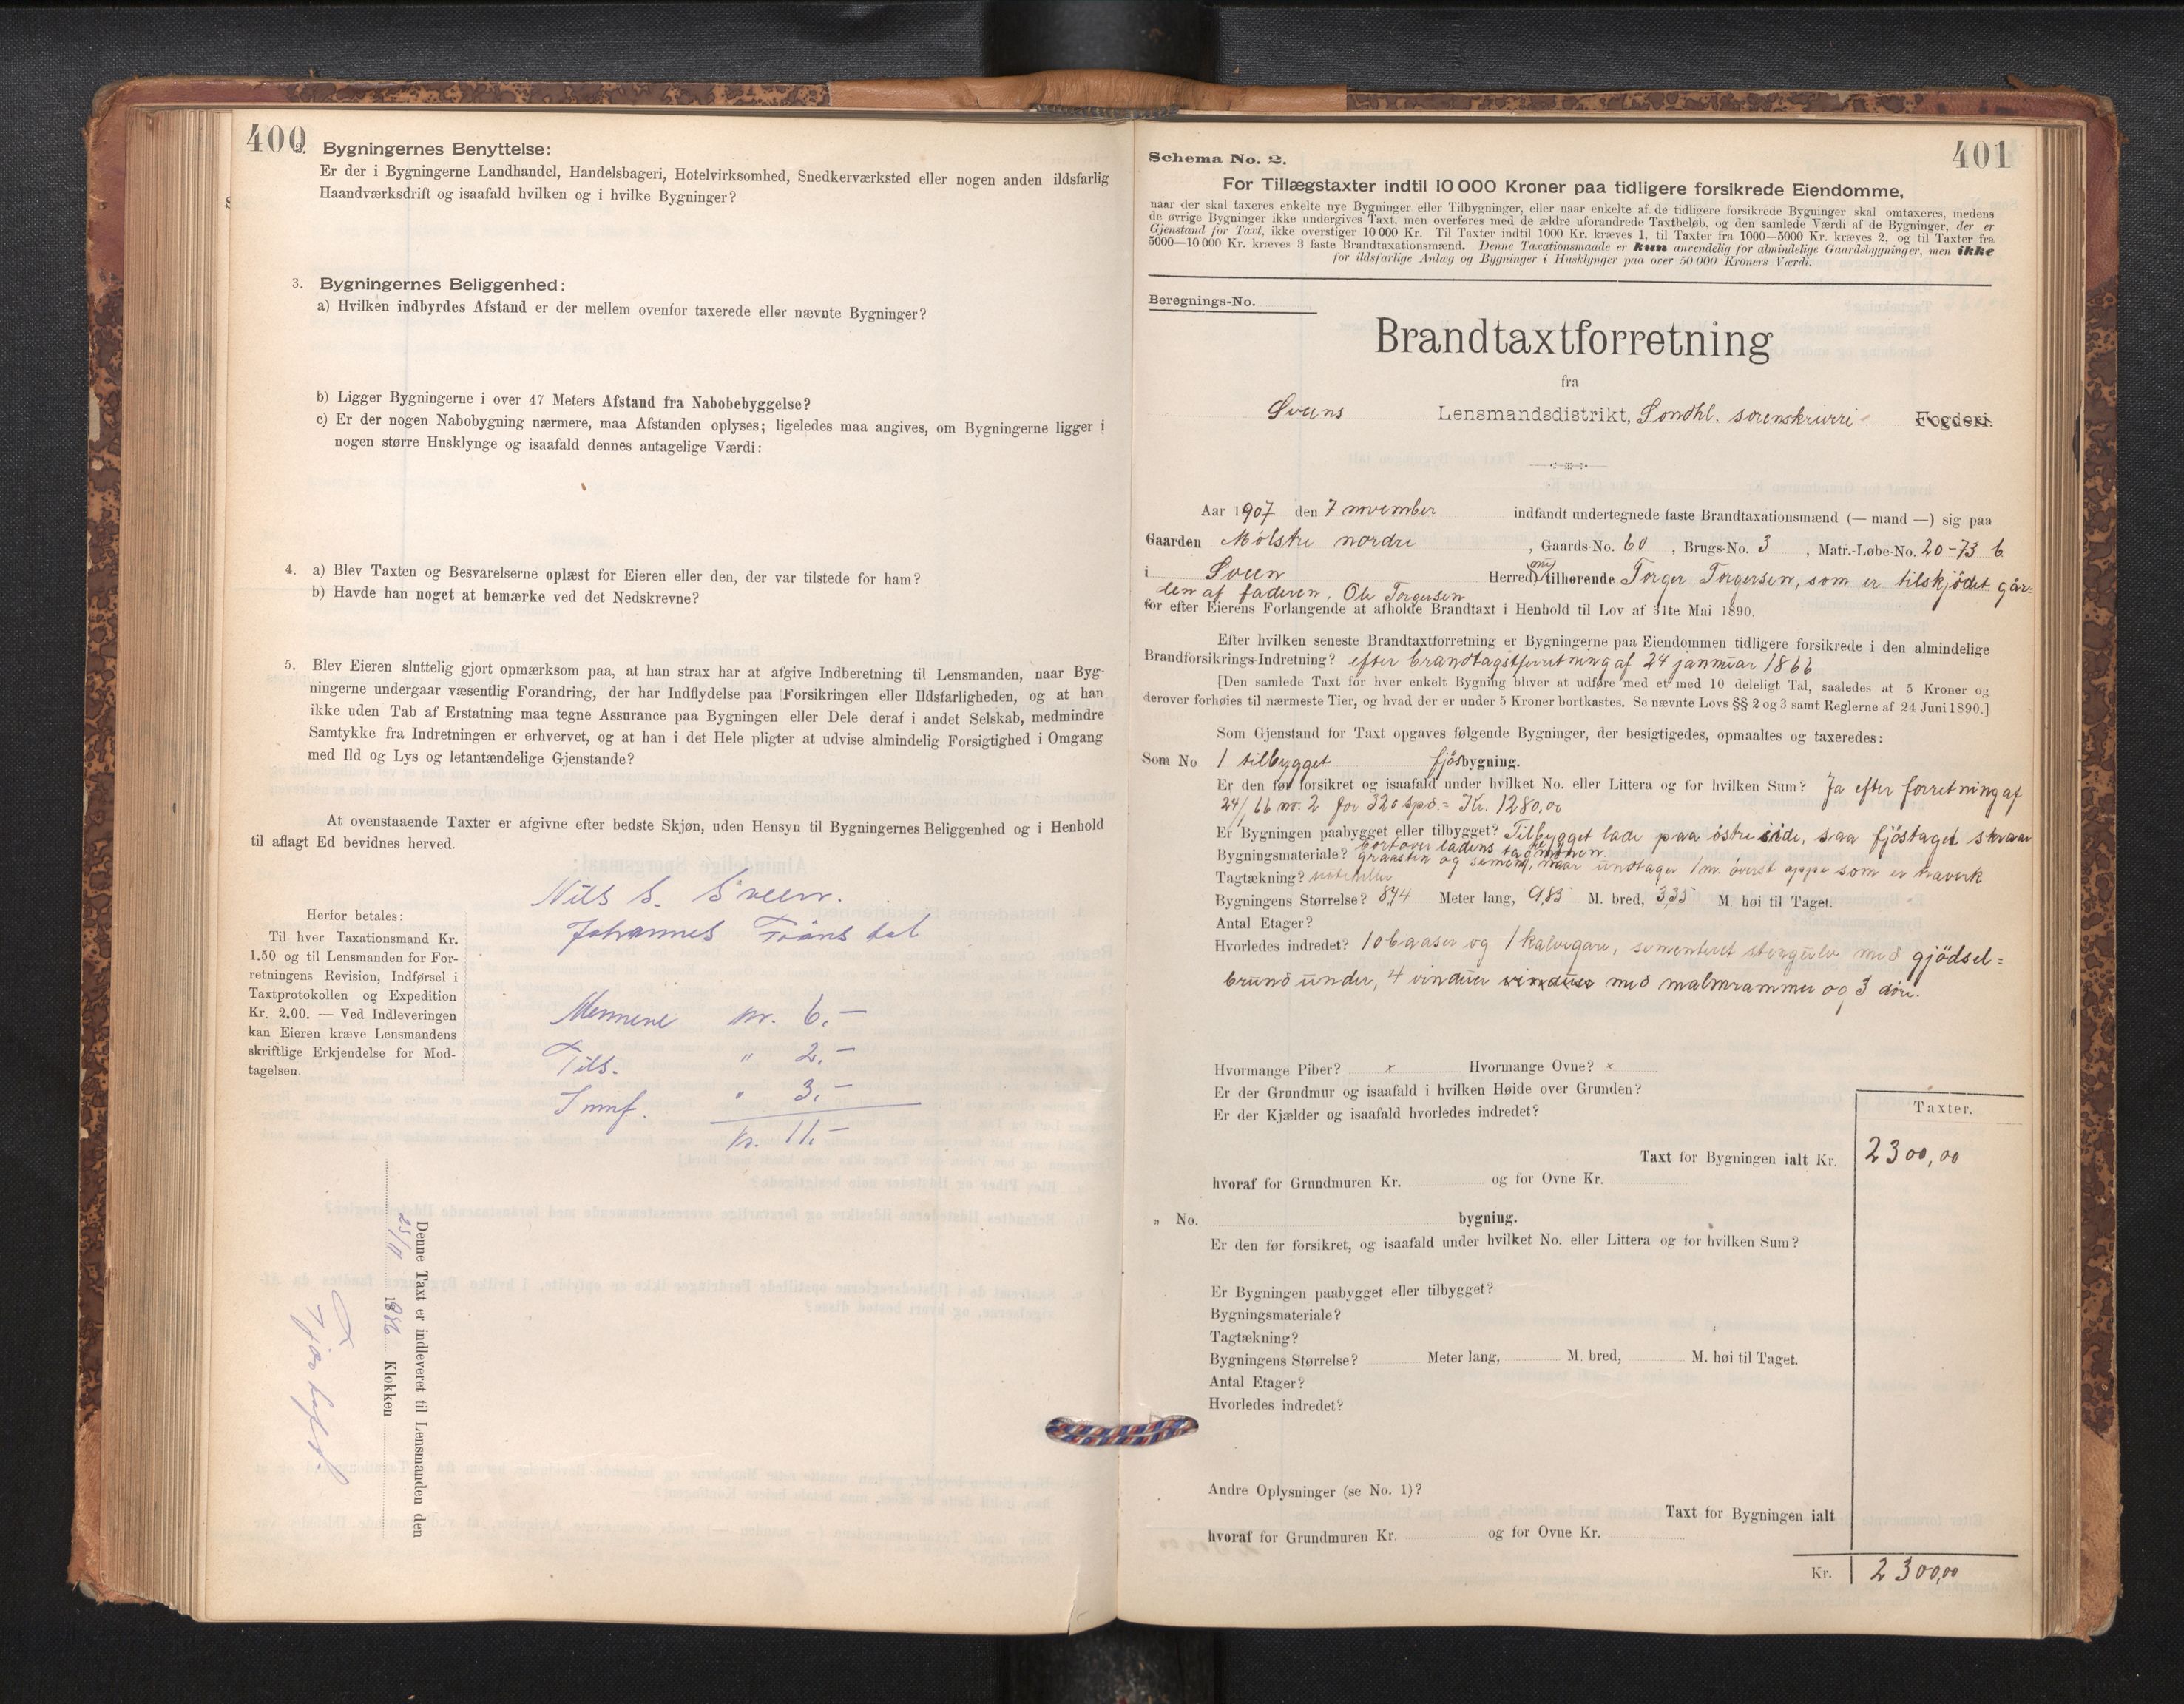 400
2. Bygningernes Benyttelse:
Er der i Bygningerne Landhandel, Handelsbageri, Hotelvirksomhed, Snedkerværksted eller nogen anden ildsfarlig
Haandværksdrift og isaafald hvilken og i hvilke Bygninger?
3. Bygningernes Beliggenhed:
a) Hvilken indbyrdes Afstand er der mellem ovenfor taxerede eller nævnte Bygninger?
b) Ligger Bygningerne i over 47 Meters Afstand fra Nabobebyggelse?
c) Er der nogen Nabobygning nærmere, maa Afstanden oplyses; ligeledes maa angives, om Bygningerne ligger i
nogen større Husklynge og isaafald dennes antagelige Værdi:
4. a) Blev Taxten og Besvarelserne oplæst for Eieren eller den, der var tilstede for ham?
b) Havde han noget at bemærke ved det Nedskrevne?
5. Blev Eieren sluttelig gjort opmærksom paa, at han strax har at afgive Indberetning til Lensmanden, naar Byg-
ningerne undergaar væsentlig Forandring, der har Indflydelse paa Forsikringen eller Ildsfarligheden, og at han
ikke uden Tab af Erstatning maa tegne Assurance paa Bygningen eller Dele deraf i andet Selskab, medmindre
Samtykke fra Indretningen er erhvervet, og at han i det Hele pligter at udvise almindelig Forsigtighed i Omgang
med Ild og Lys og letantændelige Gjenstande?
At ovenstaaende Taxter er afgivne efter bedste Skjøn, uden Hensyn til Bygningernes Beliggenhed og i Henhold
til aflagt Ed bevidnes herved.
Nils S. Sveen.
Johannes
Herfor betales:
Til hver Taxationsmand Kr.
1.50 og til Lensmanden for For-
retningens Revision, Indførsel i
Taxtprotokollen og Expedition
Kr. 2.00. — Ved Indleveringen
kan Eieren kræve Lensmandens
skriftlige Erkjendelse for Mod-
tagelsen.
Mennene Kr. 6.-
Tils. " 2.-
" 3.-
Kr. 11.-
Denne Taxt er indleveret til Lensmanden den
25/11 18 Klokken
401
Schema No. 2.
For Tillægstaxter indtil 10 000 Kroner paa tidligere forsikrede Eiendomme,
naar der skal taxeres enkelte nye Bygninger eller Tilbygninger, eller naar enkelte af de tidligere forsikrede Bygninger skal omtaxeres, medens
de øvrige Bygninger ikke undergives Taxt, men overføres med de ældre uforandrede Taxtbeløb, og den samlede Værdi af de Bygninger, der er
Gjenstand for Taxt, ikke overstiger 10 000 Kr. Til Taxter indtil 1000 Kr. kræves 1, til Taxter fra 1000—5000 Kr. kræves 2, og til Taxter fra
5000—10 000 Kr. kræves 3 faste Brandtaxationsmænd. Denne Taxationsmaade er kun anvendelig for almindelige Gaardsbygninger, men ikke
for ildsfarlige Anlæg og Bygninger i Husklynger paa over 50 000 Kroners Værdi.
Beregnings-No.
Brandtaxtforretning
fra
Sveens Lensmandsdistrikt, Söndhl. sorenskriveri- Fogderi.
Aar 1907 den 7 november indfandt undertegnede faste Brandtaxationsmænd (— mand —) sig paa
Gaarden Mölstre nordre, Gaards-No. 60, Brugs-No. 3, Matr.-Løbe-No. 20-73 b
i Sveen Herred, tilhørende Torger Torgersen, som er tilskjödet går-
den af faderen, Ole Torgersen
for efter Eierens Forlangende at afholde Brandtaxt i Henhold til Lov af 31te Mai 1890.
Efter hvilken seneste Brandtaxtforretning er Bygningerne paa Eiendommen tidligere forsikrede i den almindelige
Brandforsikrings-Indretning? efter brandtagstforretning af 24 januar 1866
[Den samlede Taxt for hver enkelt Bygning bliver at udføre med et med 10 deleligt Tal, saaledes at 5 Kroner og
derover forhøies til nærmeste Tier, og hvad der er under 5 Kroner bortkastes. Se nævnte Lovs §§ 2 og 3 samt Reglerne af 24 Juni 1890.]
Som Gjenstand for Taxt opgaves følgende Bygninger, der besigtigedes, opmaaltes og taxeredes:
Som No 1 tilbygget fjösbygning.
Er den før forsikret og isaafald under hvilket No. eller Littera og for hvilken Sum? Ja efter forretning af
24/1 66 no. 2 for 320 spd. = Kr. 1280,00
Er Bygningen paabygget eller tilbygget? Tilbygget lade paa östre side, saa fjöstaget skraar
bortover ladens tag
Bygningsmateriale? graasten og sement, undtager 1 m. överst oppe som er
Tagtækning?
Bygningens Størrelse? 8,74 Meter lang, 9,85 M. bred, 3,35 M. høi til Taget.
Antal Etager?
Hvorledes indredet? 10 baaser og 1 kalvegare, sementeret stengulv med gjödsel=
brund under, 4 vinduer vinduer med malmrammer og 3 döre.
Hvormange Piber? x Hvormange Ovne? x
Er der Grundmur og isaafald i hvilken Høide over Grunden?
Er der Kjælder og isaafald hvorledes indredet?
Taxter.
Taxt for Bygningen ialt Kr. 2300,00
hvoraf for Grundmuren Kr. og for Ovne Kr.
„ No. bygning.
Er den før forsikret, og isaafald under hvilket No. eller Littera og for hvilken Sum?
Er Bygningen paabygget eller tilbygget?
Bygningsmateriale?
Tagtækning?
Bygningens Størrelse? Meter lang, M. bred, M. høi til Taget.
Antal Etager?
Hvorledes indredet?
Andre Oplysninger (se No. 1)?
Taxt for Bygningen ialt
hvoraf for Grundmuren Kr. og for Ovne Kr.
Kr. 2300,00